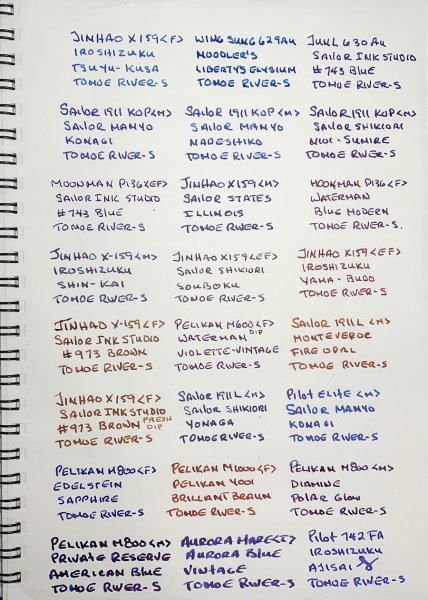 JINHAO X159<F>
IROSHIZUKU
TSUYU-KUSA
TOMOE RIVER-S
WING SUNG 629AU
NOODLER'S
LIBERTY'S ELYSIUM
TOMOE RIVER-S
630 AU
SAILOR INK STUDIO
#743 BLUE
TOMOE RIVER-S
SAILOR 1911 KOP<M>
SAILOR MANYO
KONAGI
TOMOE RIVER-S
SAILOR 1911 KOP<M>
SAILOR MANYO
NADESHIKO
TOMOE RIVER-S
SAILOR 1911 KOP<M>
SAILOR SHIKIORI
NIOI-SUMIRE
TOMOE RIVER-S
MOONMAN P136<EF>
SAILOR INK STUDIO
#743 BLUE
TOMOE RIVER-S
JINHAO X159<M>
SAILOR STATES
ILLINOIS
TOMOE RIVER-S
MOONMAN P136<F>
WATERMAN
BLUE MODERN
TOMOE RIVER-S.
JINHAO X-159<M>
IROSHIZUKU
SHIN-KAI
TOMOE RIVER-S
JINHAO X159<EF>
SAILOR SHIKIORI
SOUBOKU
TOMOE RIVER-S
JINHAO X159<EF>
IROSHIZUKU
YAMA-BUDO
TOMOE RIVER-S
JINHAO X-159<F>
SAILOR INK STUDIO
#973 BROWN
TOMOE RIVER-S
PELIKAN M600<F>
WATERMAN DIP
VIOLETTE-VINTAGE
TOMOE RIVER-S
SAILOR 1911L <M>
MONTEVERDE
FIRE OPAL
TOMOE RIVER-S
JINHAO X159<F>
SAILOR INK STUDIO
#973 BROWN FRESH DIP
TOMOE RIVER-S
SAILOR 1911L<M>
SAILOR SHIKIORI
YONAGA
TOMOE RIVER-S
PILOT ELITE <M>
SAILOR MANYO
KONAGI
TOMOE RIVER-S
PELIKAN M800<F>
EDELSTEIN
SAPPHIRE
TOMOE RIVER-S
PELIKAN M1000<F>
PELIKAN 4001
BRILLIANT BRAUN
TOMOE RIVER-S
PELIKAN M800<M>
DIAMINE
POLAR GLOW
TOMOE RIVER-S
PELIKAN M800<M>
PRIVATE RESERVE
AMERICAN BLUE
TOMOE RIVER-S
AURORA MARE<I>
AURORA BLUE
VINTAGE
TOMOE RIVER-S
PILOT 742 FA
IROSHIZUKU
AJISAI
TOMOE RIVER-S